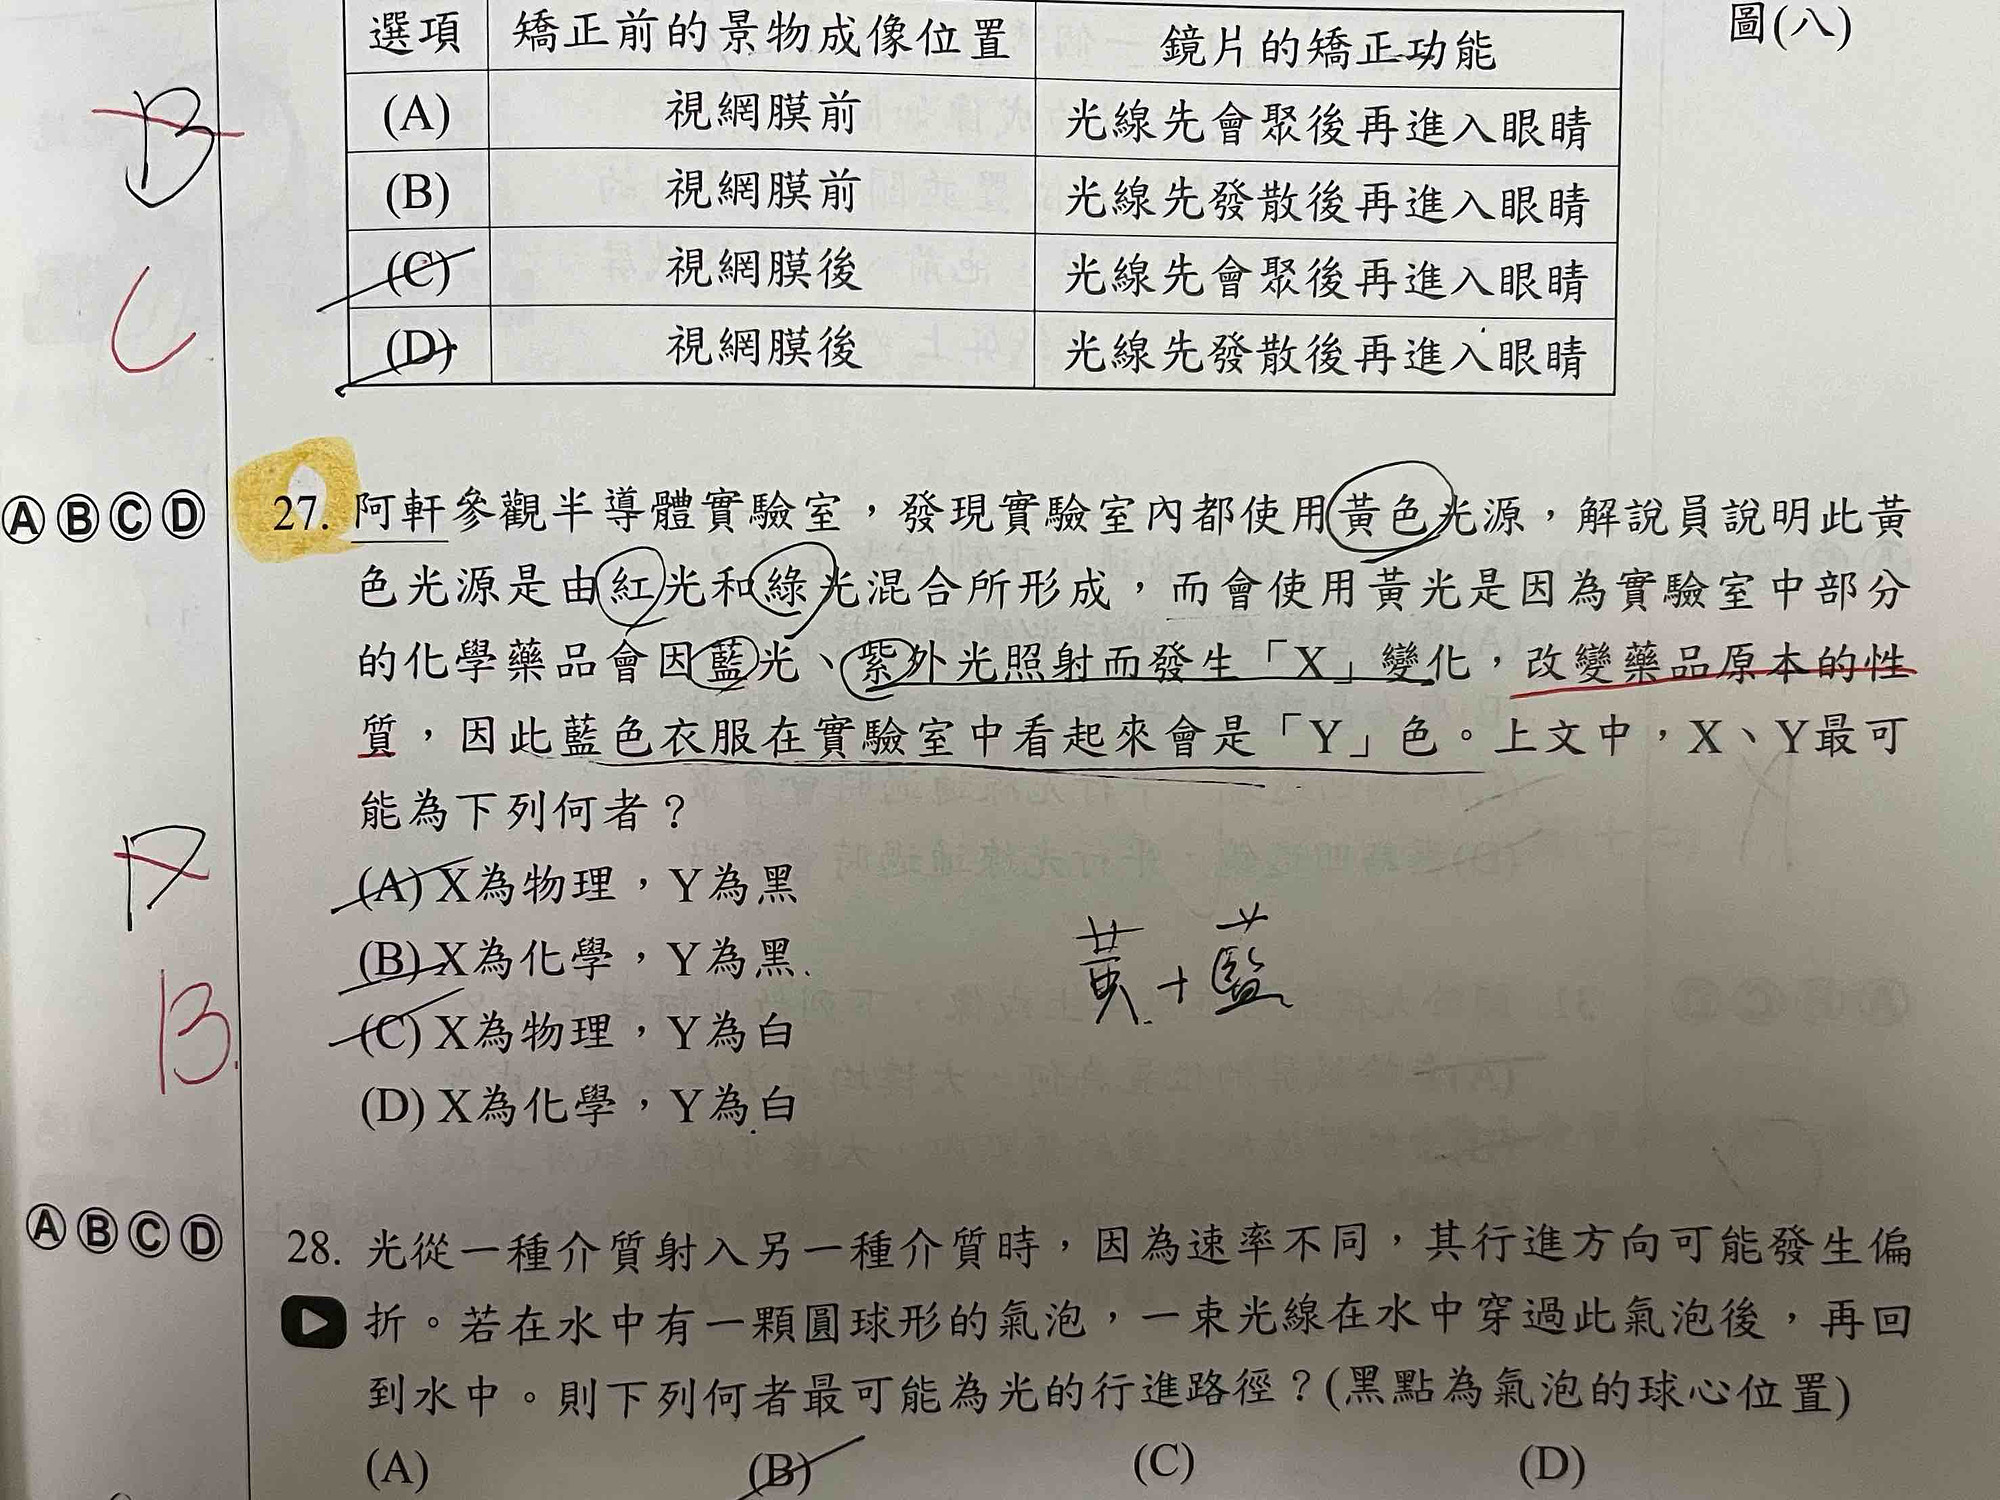 選項 矯正前的景物成像位置 鏡片的矯正功能
圖(八)
(A) 視網膜前 光線先會聚後再進入眼睛
(B) 視網膜前 光線先發散後再進入眼睛
(C) 視網膜後 光線先會聚後再進入眼睛
(D) 視網膜後 光線先發散後再進入眼睛
B
C
ⒶⒷⒸⒹ 27. 阿軒參觀半導體實驗室，發現實驗室內都使用黃色光源，解說員說明此黃
色光源是由紅光和綠光混合所形成，而會使用黃光是因為實驗室中部分
的化學藥品會因藍光、紫外光照射而發生「X」變化，改變藥品原本的性
質，因此藍色衣服在實驗室中看起來會是「Y」色。上文中，X、Y最可
能為下列何者？
(A) X為物理，Y為黑
(B) X為化學，Y為黑
(C) X為物理，Y為白
(D) X為化學，Y為白
黃+藍
B.
ⒶⒷⒸⒹ 28. 光從一種介質射入另一種介質時，因為速率不同，其行進方向可能發生偏
折。若在水中有一顆圓球形的氣泡，一束光線在水中穿過此氣泡後，再回
到水中。則下列何者最可能為光的行進路徑？(黑點為氣泡的球心位置)
(A) (B) (C) (D)